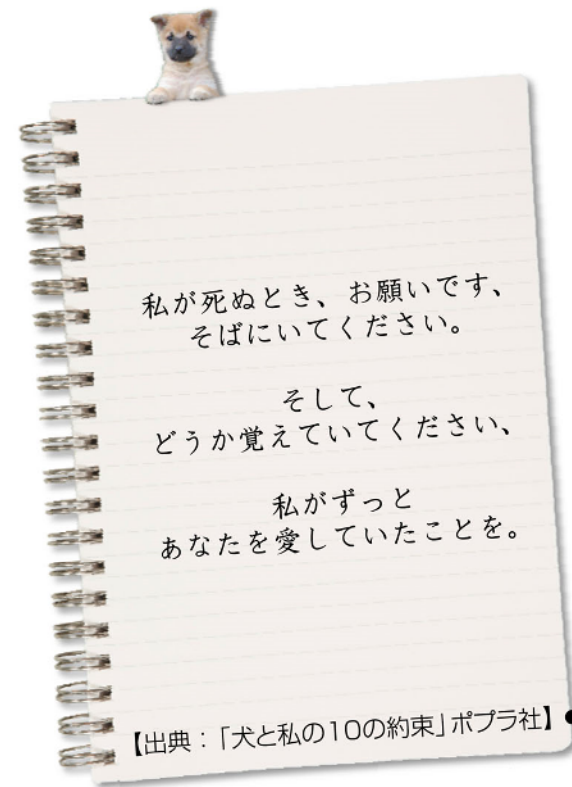 私が死ぬとき、お願いです、
そばにいてください。
そして、
どうか覚えていてください、
私がずっと
あなたを愛していたことを。
【出典：「犬と私の10の約束」ポプラ社】